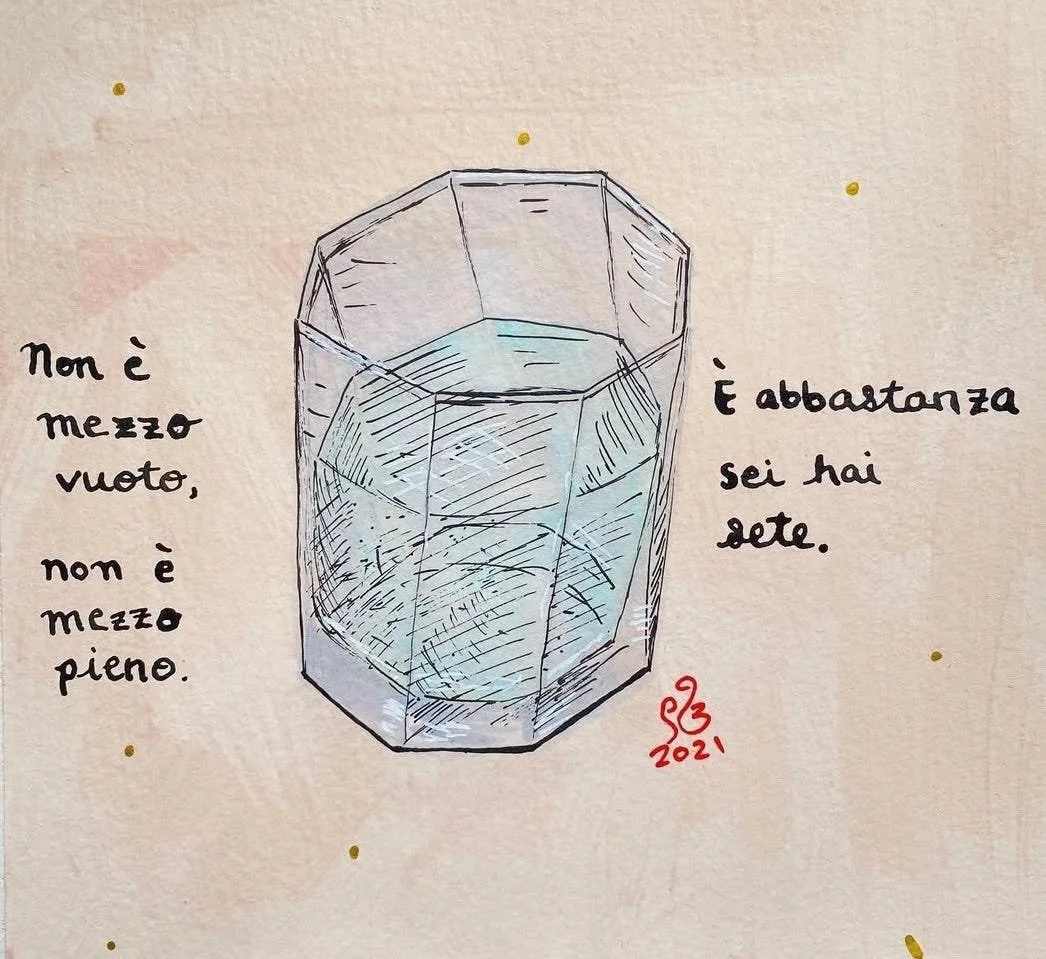 Non è
mezzo
vuoto,
non è
mezzo
pieno.
È abbastanza
sei hai
sete.
2021